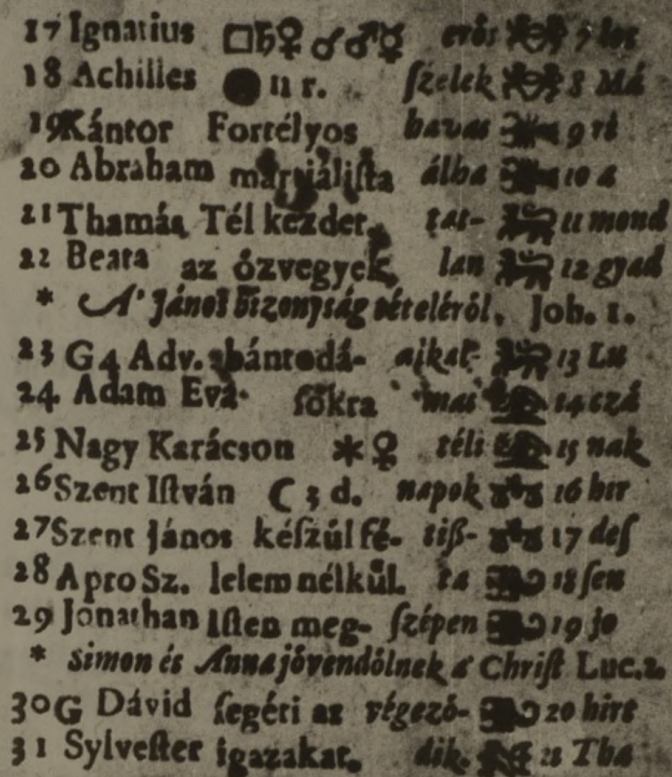 17 Ignatius □♄♀ ☌♂☿ erős 7
18 Achilles ● 11 r. ſzelek 8 Má
19 Kántor Fortélyos havas 9
20 Abraham márſiáliſta álba 10 a
21 Thamás Tél kezdet. tar- 11 mond
22 Beata az özvegyek, lan 12 gyad
* A' János bizonyság tételéről. Joh. 1.
23 G 4 Adv. bántodá- 13 Lu
24 Adam Eva ſokra mas 14 czá
25 Nagy Karácson ⚹ ♀ téli 15 nak
26 Szent Iſtván ☾ 3 d. napok 16 hir
27 Szent János kéſzül fé- tiß- 17 deſ
28 Apro Sz. lelem nélkül. ta 18 ſen
29 Jonathan Iſten meg- ſzépen 19 jo
* Simon és Anna jövendölnek a' Chriſt Luc. 2
30 G Dávid ſegéti az végező- 20 hirt
31 Sylveſter igazakat. dik. 21 Tha